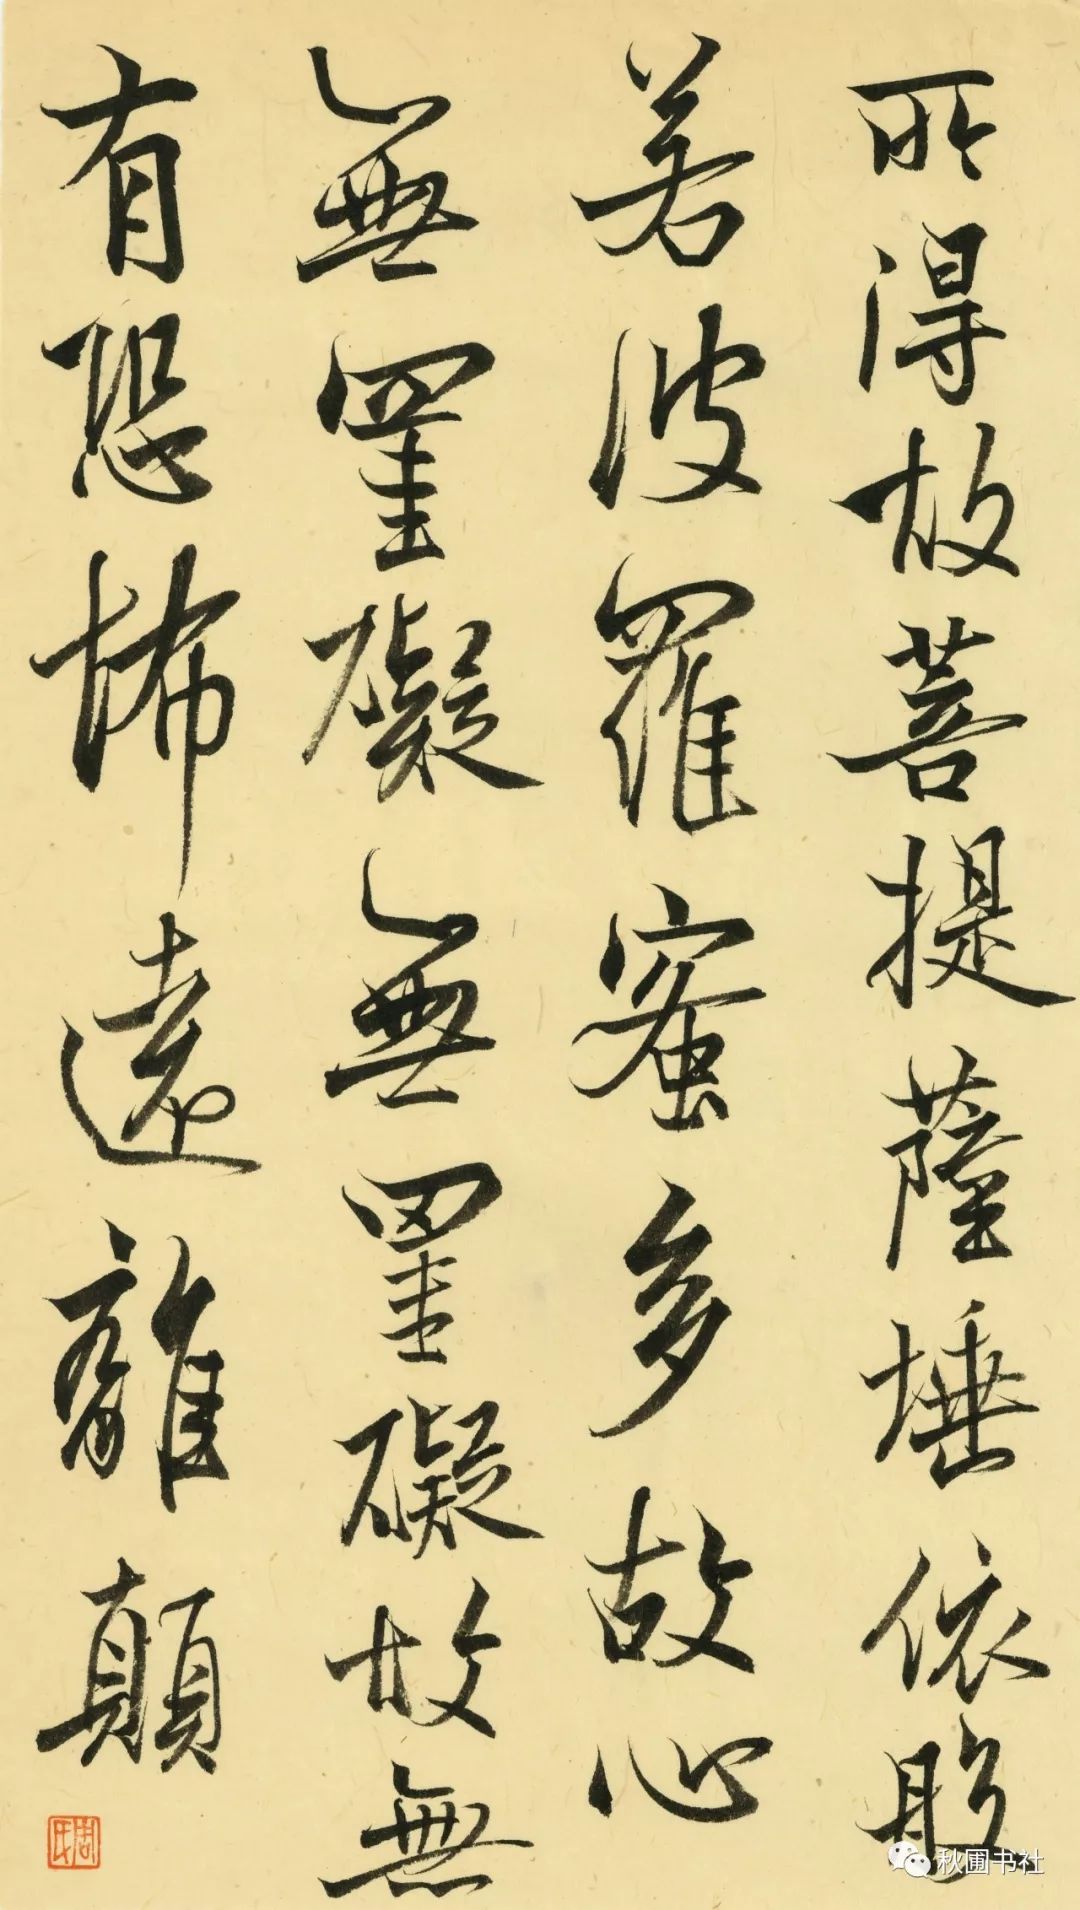 所得故菩提薩埵依般
若波羅蜜多故心
無罣礙無罣礙故無
有恐怖遠離顛
周氏
秋圃书社